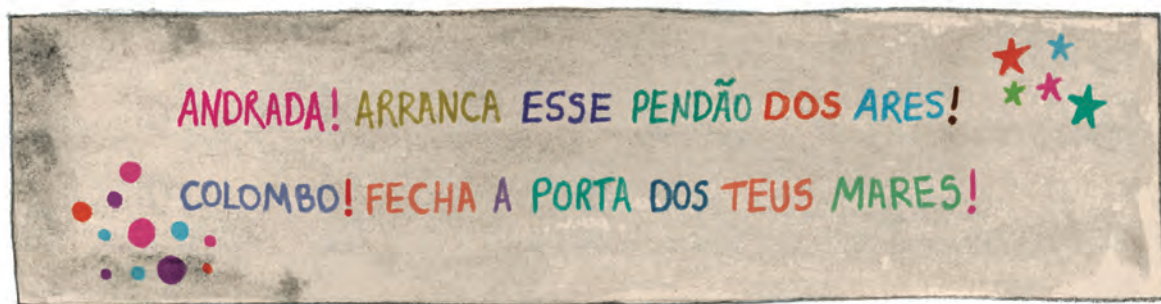 ANDRADA! ARRANCA ESSE PENDÃO DOS ARES!
COLOMBO! FECHA A PORTA DOS TEUS MARES!